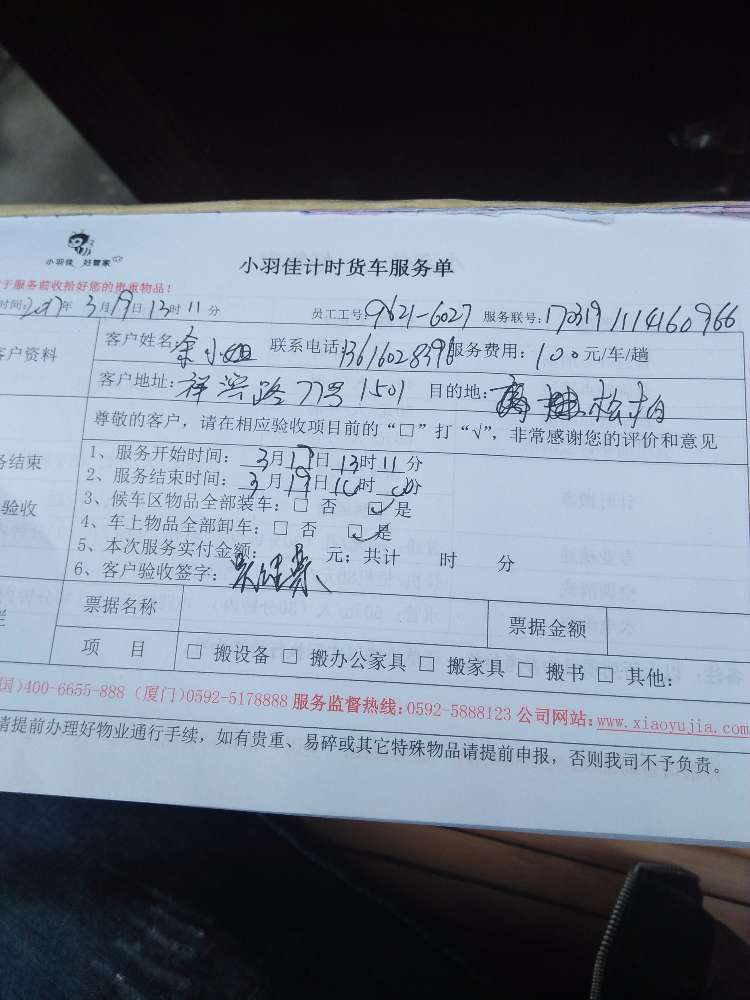 小羽佳 好管家
小羽佳计时货车服务单
于服务前收拾好您的贵重物品!
时间:2017年3月19日13时11分 员工工号:9621-6027 服务联号:170319111416096
客户资料 客户姓名: 余小姐 联系电话:13616028398 服务费用:100元/车/趟
客户地址: 祥滨路77号1501 目的地: 松柏
尊敬的客户，请在相应验收项目前的“□”打“√”，非常感谢您的评价和意见
务结束
验收
1、服务开始时间: 3月19日13时11分
2、服务结束时间: 3月19日 时 分
3、候车区物品全部装车:□ 否 ☑ 是
4、车上物品全部卸车:□ 否 ☑ 是
5、本次服务实付金额: 元; 共计 时 分
6、客户验收签字:
栏 票据名称 票据金额
项 目 □ 搬设备 □ 搬办公家具 □ 搬家具 □ 搬书 □ 其他:
国)400-6655-888 (厦门)0592-5178888 服务监督热线:0592-5888123 公司网站:www.xiaoyujia.com
请提前办理好物业通行手续，如有贵重、易碎或其它特殊物品请提前申报，否则我司不予负责。